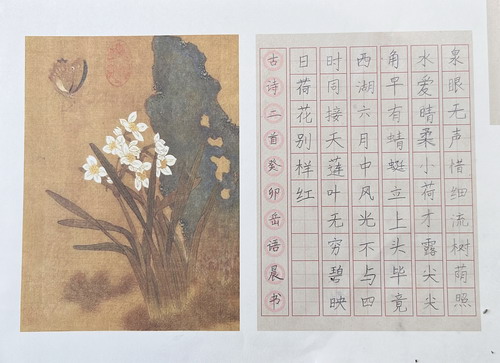 泉眼无声惜细流树萌照
水爱晴柔小荷才露尖尖
角早有蜻蜓立上头毕竟
西湖六月中风光不与四
时同接天莲叶无穷碧映
日荷花别样红
古诗二首癸卯岳语晨书